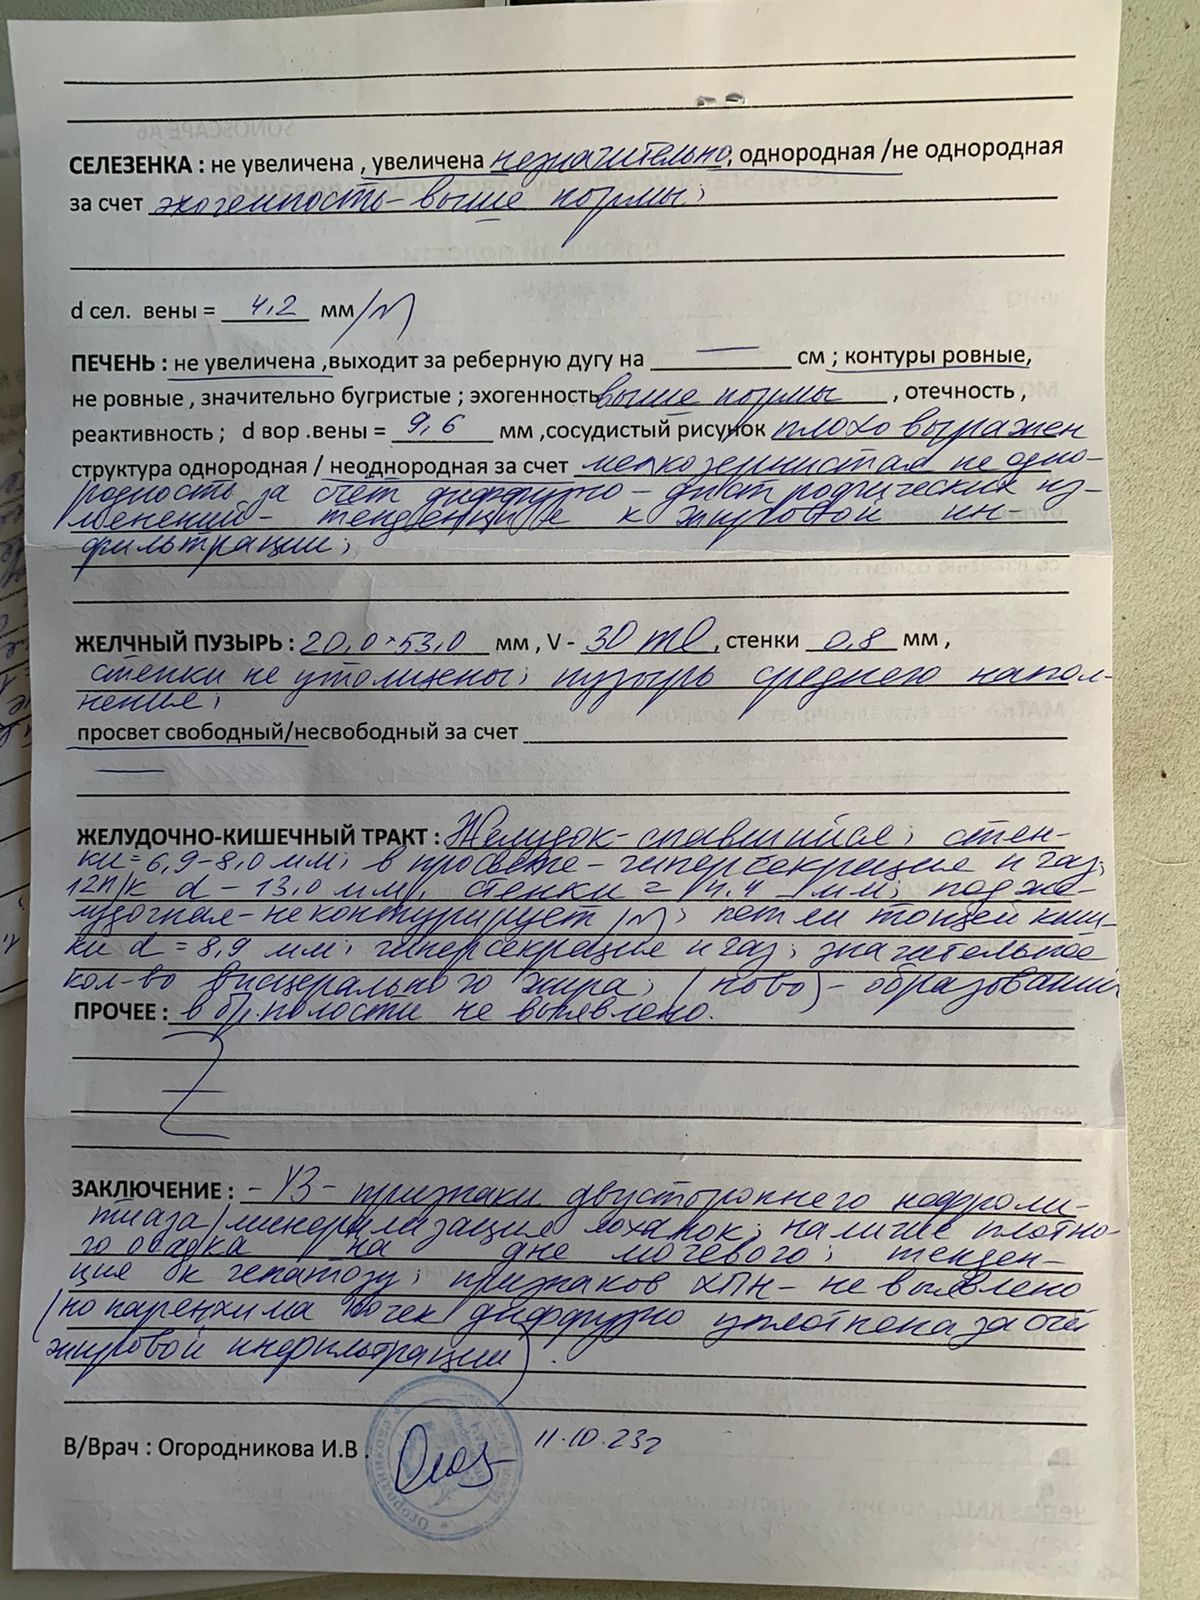 СЕЛЕЗЕНКА : не увеличена , увеличена незначительно, однородная /не однородная
за счет эхогенность - выше нормы;
d сел. вены = 4,2 мм /N
ПЕЧЕНЬ : не увеличена ,выходит за реберную дугу на — см ; контуры ровные,
не ровные , значительно бугристые ; эхогенность выше нормы , отечность ,
реактивность ; d вор .вены = 9,6 мм ,сосудистый рисунок плохо выражен
структура однородная / неоднородная за счет мелкозернистая не одно-
родность за счёт диффузно - дистрофических из-
менений - тенденция к жировой ин-
фильтрации;
ЖЕЛЧНЫЙ ПУЗЫРЬ : 20,0 × 53,0 мм , V - 30 ml , стенки 0,8 мм ,
стенки не утолщены; пузырь среднего напол-
нения;
просвет свободный/несвободный за счет
—
ЖЕЛУДОЧНО-КИШЕЧНЫЙ ТРАКТ : Желудок - спавшийся; стен-
ки = 6,9 - 8,0 мм; в просвете - гиперсекреция и газ;
12п/к d - 13,0 мм, стенки = 4,4 мм; подже-
лудочная - не контурирует /N; петли тощей киш-
ки d = 8,9 мм; гиперсекреция и газ; значительное
кол-во висцерального жира; (ново) - образований
ПРОЧЕЕ : в бр. полости не выявлено.
ЗАКЛЮЧЕНИЕ : - УЗ - признаки двустороннего нефроли-
тиаза/минерализация лоханок; наличие плотно-
го осадка на дне мочевого; тенден-
ция к гепатозу; признаков ХПН - не выявлено
(но паренхима почек диффузно уплотнена за счёт
жировой инфильтрации).
В/Врач : Огородникова И.В .
11.10.23г